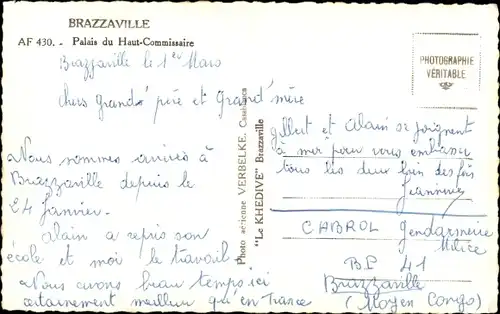 BRAZZAVILLE
AF 430. - Palais du Haut-Commissaire
PHOTOGRAPHIE
VÉRITABLE
Brazzaville le 1er Mars
chers Grand'père et Grand'mère
Nous sommes arrivés à
Brazzaville depuis le
24 Janvier.
Alain a repris son
école et moi le travail
Nous avons beau temps ici
certainement meilleur qu'en France
Photo aérienne VERBELKE, Casablanca
"Le KHEDIVE" Brazzaville
Gilbert et Alain se joignent
à moi pour vous embrasser
tous les deux bien des fois
CABROL Gendarmerie
Milice
BP 41
Brazzaville
(Moyen Congo)